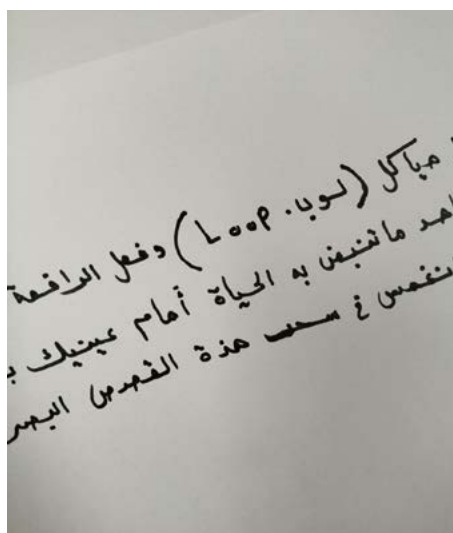 هياكل (لوب. Loop) وفعل الرافعة
ما تنبض به الحياة أمام عينيك
في سحب هذة القصص